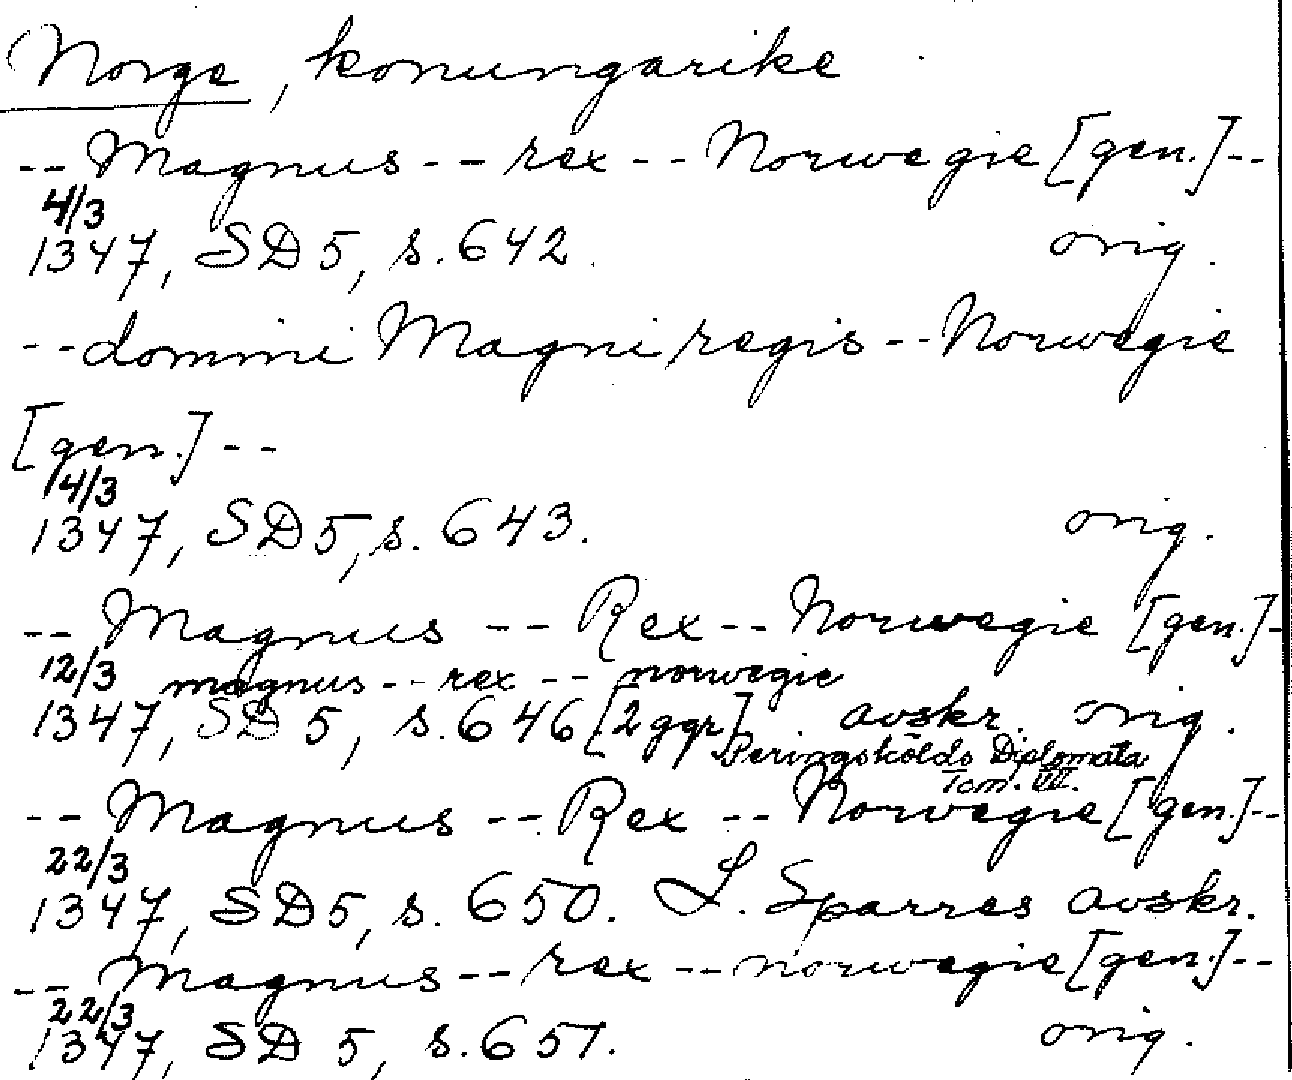 Norge, konungarike
-- Magnus -- rex -- Norwegie [gen.] --
4/3
1347, SD 5, s. 642. orig.
-- domini Magni regis -- Norwegie
[gen.] --
14/3
1347, SD 5, s. 643. orig.
-- Magnus -- Rex -- Norwegie [gen.] -
12/3 magnus -- rex -- norwegie
1347, SD 5, s. 646 [2 ggr] avskr. orig.
Peringskölds Diplomata
Tom. III.
-- Magnus -- Rex -- Norwegie [gen.] --
22/3
1347, SD 5, s. 650. L. Sparres avskr.
-- Magnus -- rex -- norwegie [gen.] --
22/3
1347, SD 5, s. 651. orig.